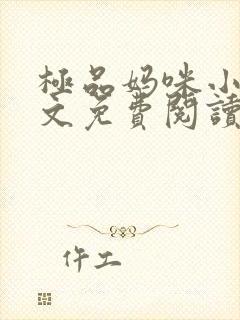 極品妈咪小
文免費閱讀
仵工